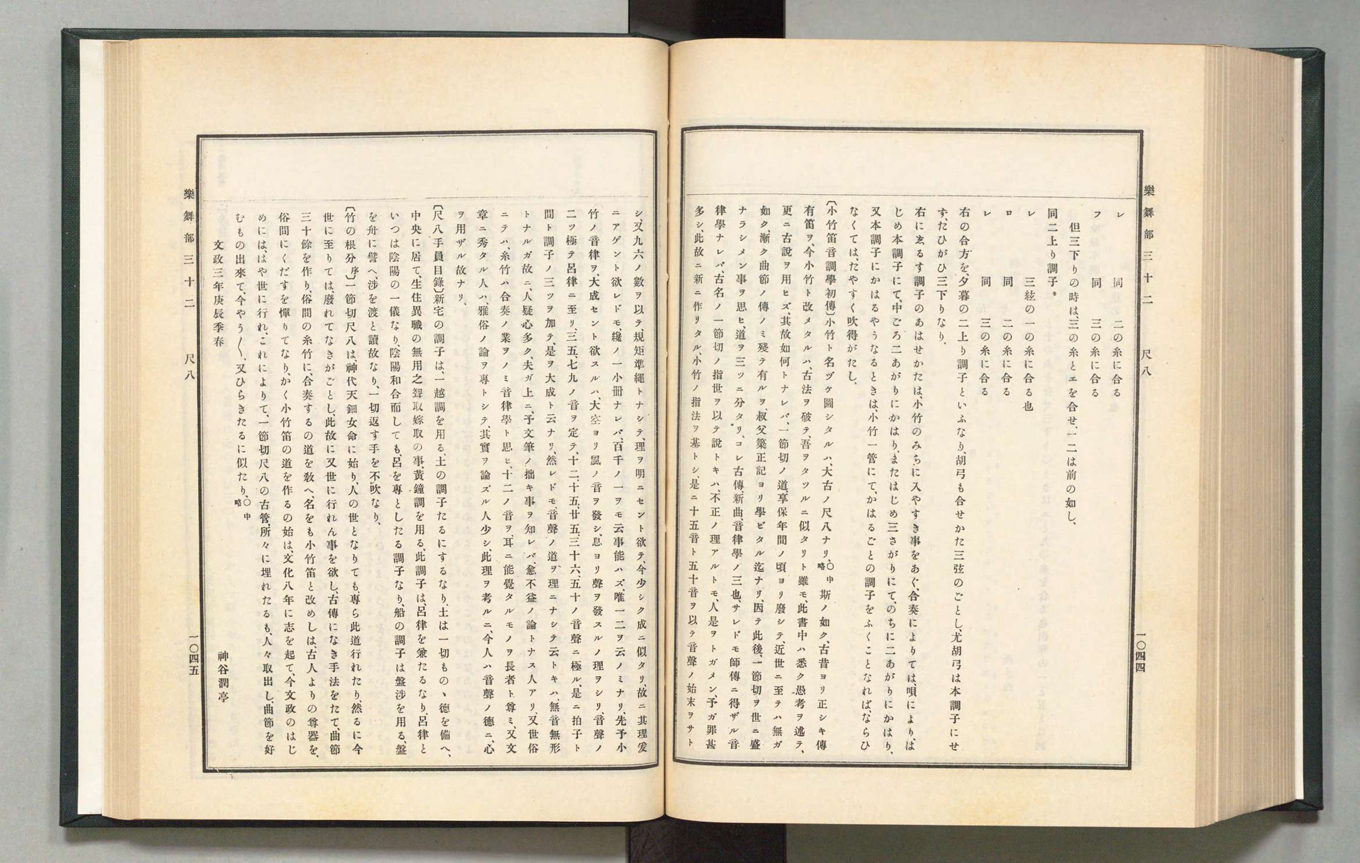 樂舞部三十二 尺八
一〇四四
レ 同 二の糸に合る
フ 同 三の糸に合る
但三下りの時は、三の糸とエを合せ、一二は前の如し、
同二上り調子。
レ 三絃の一の糸に合る也
ロ 同 二の糸に合る
レ 同 三の糸に合る
右の合方を、夕暮の二上り調子といふなり、胡弓も合せかた三弦のごとし、尤胡弓は本調子にせ
ず、たひがひ三下りなり、
右にゑるす調子のあはせかたは、小竹のみちに入やすき事をあぐ、合奏によりては、唄により、は
じめ本調子にて、中ごろ二あがりにかはり、またはじめ三さがりにてのちに二あがりにかはり、
又本調子にかはるやうなるときは、小竹一管にて、かはるごとの調子をふくことなれば、ならひ
なくては、たやすく吹得がたし、
〔小竹笛音調學初傳〕小竹ト名ヅケ圖シタルハ、大古ノ尺八ナリ、〇中略 斯ノ如ク、古昔ヨリ正シキ傳
有笛ヲ、今小竹ト改メタルハ、古法ヲ破テ、吾ヲタツルニ似タリト雖モ、此書中ハ悉ク愚考ヲ述テ、
更ニ古說ヲ用ヒズ、其故如何トナレバ、一節切ノ道、享保年間ノ頃ヨリ廢シテ、近世ニ至テハ無ガ
如ク、漸ク曲節ノ傳ノミ殘テ有ルヲ、叔父築正記ヨリ學ビタル迄ナリ、因テ此後、一節切ヲ世ニ盛
ナラシメン事ヲ思ヒ、道ヲ三ツニ分タリ、コレ古傳、新曲、音律學ノ三也、サレドモ師傳ニ得ザル音
律學ナレバ、古名ノ一節切ノ指世ヲ以テ說トキハ、不正ノ理アルトモ、人是ヲトガメン、予ガ罪甚
多シ、此故ニ新ニ作リタル、小竹ノ指法ヲ基トシ、是ニ十五音ト五十音ヲ以テ音聲ノ始末ヲサト
シ、又九六ノ數ヲ以テ規矩準繩トナシテ、理ヲ明ニセント欲テ、今少シク成ニ似タリ、故ニ其理爰
ニアゲント欲レドモ、纔ノ一小冊ナレバ、百千ノ一ヲモ云事能ハズ、唯一二ヲ云ノミナリ、先予小
竹ノ音律ヲ、大成セント欲スルハ、大空ヨリ風ノ音ヲ發シ、息ヨリ聲ヲ發スルノ理ヲシリ、音聲ノ
二ツ極テ呂律ニ至リ、三五七九ノ音ヲ定テ、十二、十五、廿五、三十六、五十ノ音聲ニ極ル、是ニ拍子ト
間ト調子ノ三ツヲ加テ、是ヲ大成ト云ナリ、然レドモ、音聲ノ道ヲ理ニナシテ云トキハ、無音無形
トナルガ故ニ、人疑心多ク、夫ガ上ニ、予文筆ノ拙キ事ヲ知レバ、愈不益ノ論トナス人アリ、又世俗
ニテハ、糸竹ハ合奏ノ業ヲノミ音律學ト思ヒ、十二ノ音ヲ耳ニ能覺タルモノヲ長者ト尊ミ、又文
章ニ秀タル人ハ、雅俗ノ論ヲ專トシテ、其實ヲ論ズル人少シ、此理ヲ考ルニ、今人ハ音聲ノ德ニ、心
ヲ用ザル故ナリ、
〔尺八手員目錄〕新宅の調子は、一越調を用る、土の調子たるにするなり、土は一切ものゝ德を備へ、
中央に居て、生住異職の無用之聲、取嫁取の事、黃鐘調を用る、此調子は呂律を兼たるなり、呂律と
いつは陰陽の一儀なり、陰陽和合而しても、呂を專としたる調子なり、船の調子は盤涉を用る、盤
を舟に譬へ、涉を渡と讀故なり、一切返す手を不吹なり、
〔竹の根分序〕一節切尺八は、神代天鈿女命に始り、人の世となりても專ら此道行れたり、然るに今
世に至りては、廢れてなきがごとし、此故に又世に行れん事を欲し、古傳になき手法をたて、曲節
三十餘を作り、俗間の糸竹に、合奏するの道を敎へ、名をも小竹笛と改めしは、古人よりの尊器を、
俗間にくだすを憚りてなり、かく小竹笛の道を作るの始は、文化八年に志を起て、今文政のはじ
めにははや世に行れ、これによりて、一節切尺八の古管、所々に埋れたるも、人々取出し、曲節を好
むもの出來て、今やう〳〵、又ひらきたるに似たり、〇中略
文政三年庚辰季春 神谷潤亭
樂舞部三十二 尺八
一〇四五